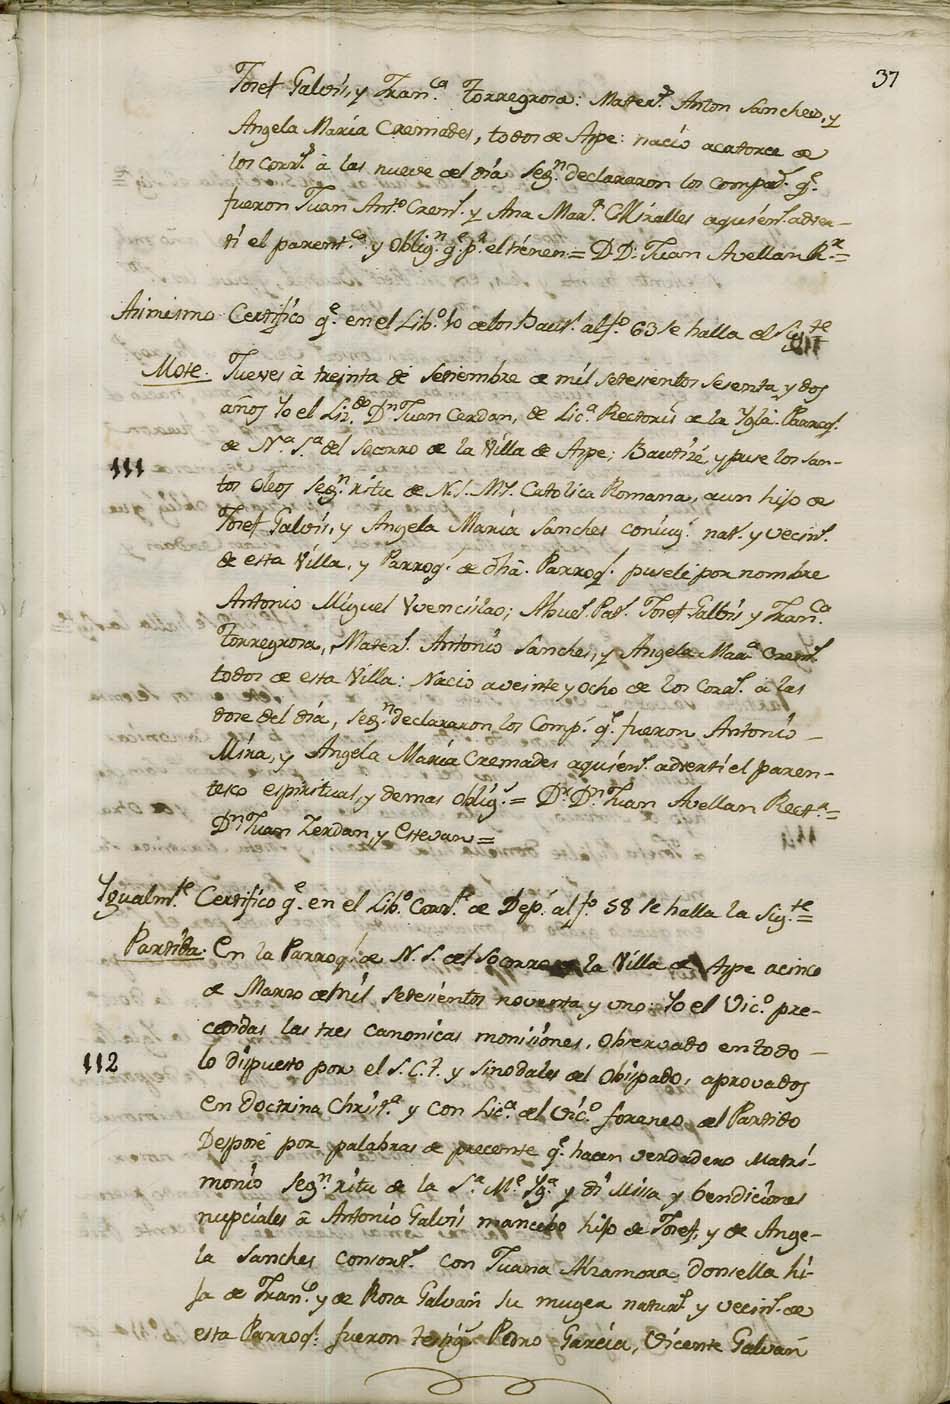 37
Josef Galvis, y Fran.ca Torregrosa: Mater.s Anton Sanches, y
Angela Maria Cremades, todos de Aspe: nació acatorce de
los corr.s à las nueve del dia seg.n declararon los compad.s q.e
fueron Juan Ant.o Crem.s y Ana Mar.a Miralles aquien.s adver-
ti el parent.co y Oblig.n q.e p.r el tienen = D.D. Juan Avellan R.r =
Asimismo Certifico q.e en el Lib.o 10 de los Baut.s al f.o 63 se halla el sig.te
Mote. Jueves à treinta de Setiembre de mil setesientos sesenta y dos
años Yo el Liz.do D.n Juan Cerdan, de Lic.a Rectoris de la Ygla. Parroq.l
de N.a S.a del Socorro de la Villa de Aspe; Bautizé, y puse los san-
111
tos oleos seg.n ritu de N.S. M.e Catolica Romana, aun hijo de
Josef Galvis, y Angela Maria Sanches coniug.s nat.s y vecin.s
de esta Villa, y Parroq.s de dhã. Parroq.l pusele por nombre
Antonio Miguel Vvencislao; Abuel.s Pat.s Josef Galvis y Fran.ca
Torregrosa, Mater.s Antonio Sanches, y Angela Mar.a Crem.s
todos de esta Villa: Nacio aveinte y ocho de los Corr.s à las
dose del dia, seg.n declararon los Comp.s q.e fueron Antonio
Mira, y Angela Maria Cremades aquien.s adverti el paren-
tesco espiritual, y demas oblig.s = D.r D.n Juan Avellan Rect.r =
D.n Juan Zerdan, y Estevan =
Ygualm.te Certifico q.e en el Lib.o Corr.te de Dep.s al f.o 58 se halla la sig.te =
Partida: En la Parroq.l de N.S. del Socorro de la Villa de Aspe acinco
de Marzo de mil setesientos noventa y uno: Yo el Vic.o pre-
cedidas las tres canonicas monisiones, Observado en todo
112
lo dispuesto por el S.C.T. y Sinodales del Obispado, aprovados
en doctrina Christ.a y con Lic.a del Vic.o foraneo del Partido
Desposé por palabras de precente q.e hacen verdadero Matri-
monio seg.n ritu de la S.a M.e Yg.a y di Misa y bendiciones
nupciales à Antonio Galvis mancebo hijo de Josef, y de Ange-
la Sanches consort.s con Juana Alzamora donsella hi-
ja de Fran.co y de Rosa Galvañ su muger natur.s y vecin.s de
esta Parroq.l fueron testig.s Pedro Garcia, Vicente Galvañ